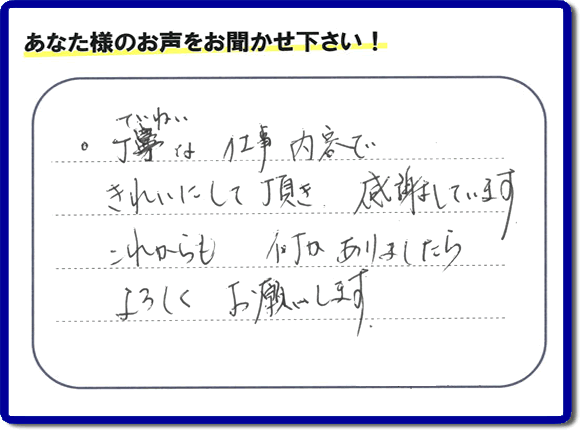 あなた様のお声をお聞かせ下さい！
ていねい
。丁寧な 仕事 内容で
きれいにして頂き 感謝しています
これからも 何かありましたら
よろしく お願いします